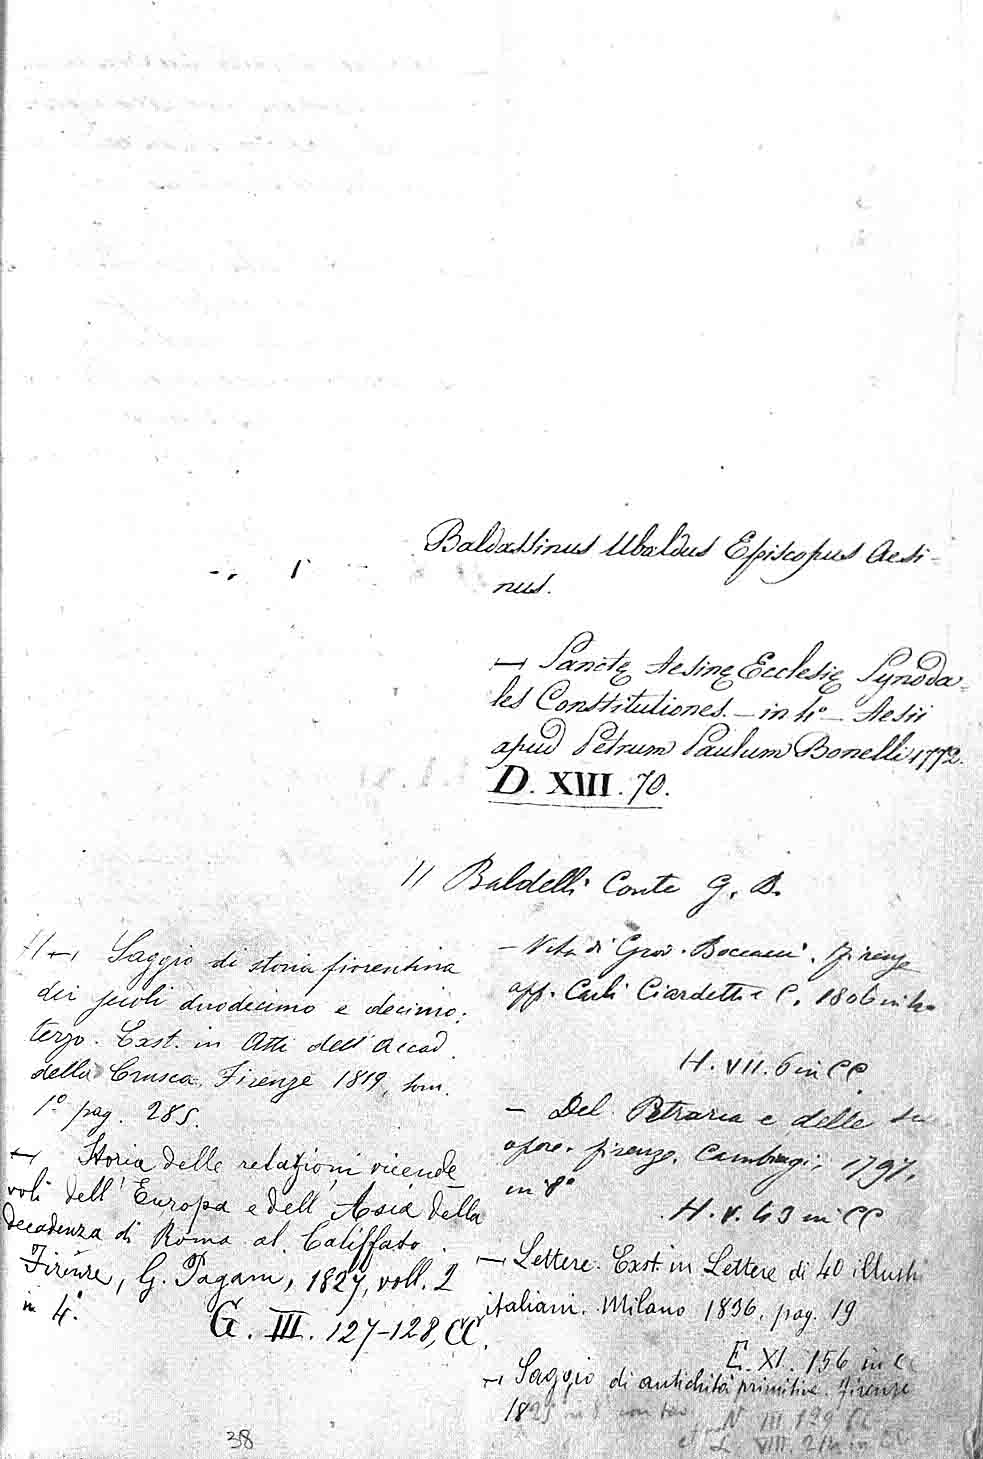 Baldassinus Ubaldus Episcopus Aesi-
nus.
— Sanctę Aesinę Ecclesię Synoda-
les Constitutiones. — in 4° — Aesii
apud Petrum Paulum Bonelli 1772.
D. XIII. 70.
// Baldelli Conte G. B.
— Saggio di storia fiorentina
dei secoli duodecimo e decimo.
terzo. Exst. in Atti dell'Accad.
della Crusca. Firenze 1819, tom.
1° pag. 285.
— Storia delle relazioni vicende
voli dell'Europa e dell'Asia dalla
decadenza di Roma al Califfato.
Firenze, G. Pagani, 1827, voll. 2
in 4°.
G. III. 127-128, CC.
— Vita di Giov. Boccacci. Firenze
app. Carli Ciardetti e C. 1806 in 4°
H. VII. 6 in CC
— Del Petrarca e delle sue
opere. firenze. Cambiagi, 1797,
in 8°
H. V. 43 in CC
— Lettere. Exst. in Lettere di 40 illustri
italiani. Milano 1836. pag. 19
E. XI. 156 in CC
— Saggio di antichità primitive. Firenze
1825 in 8
N III 129 CC
e L VIII. in CC
38